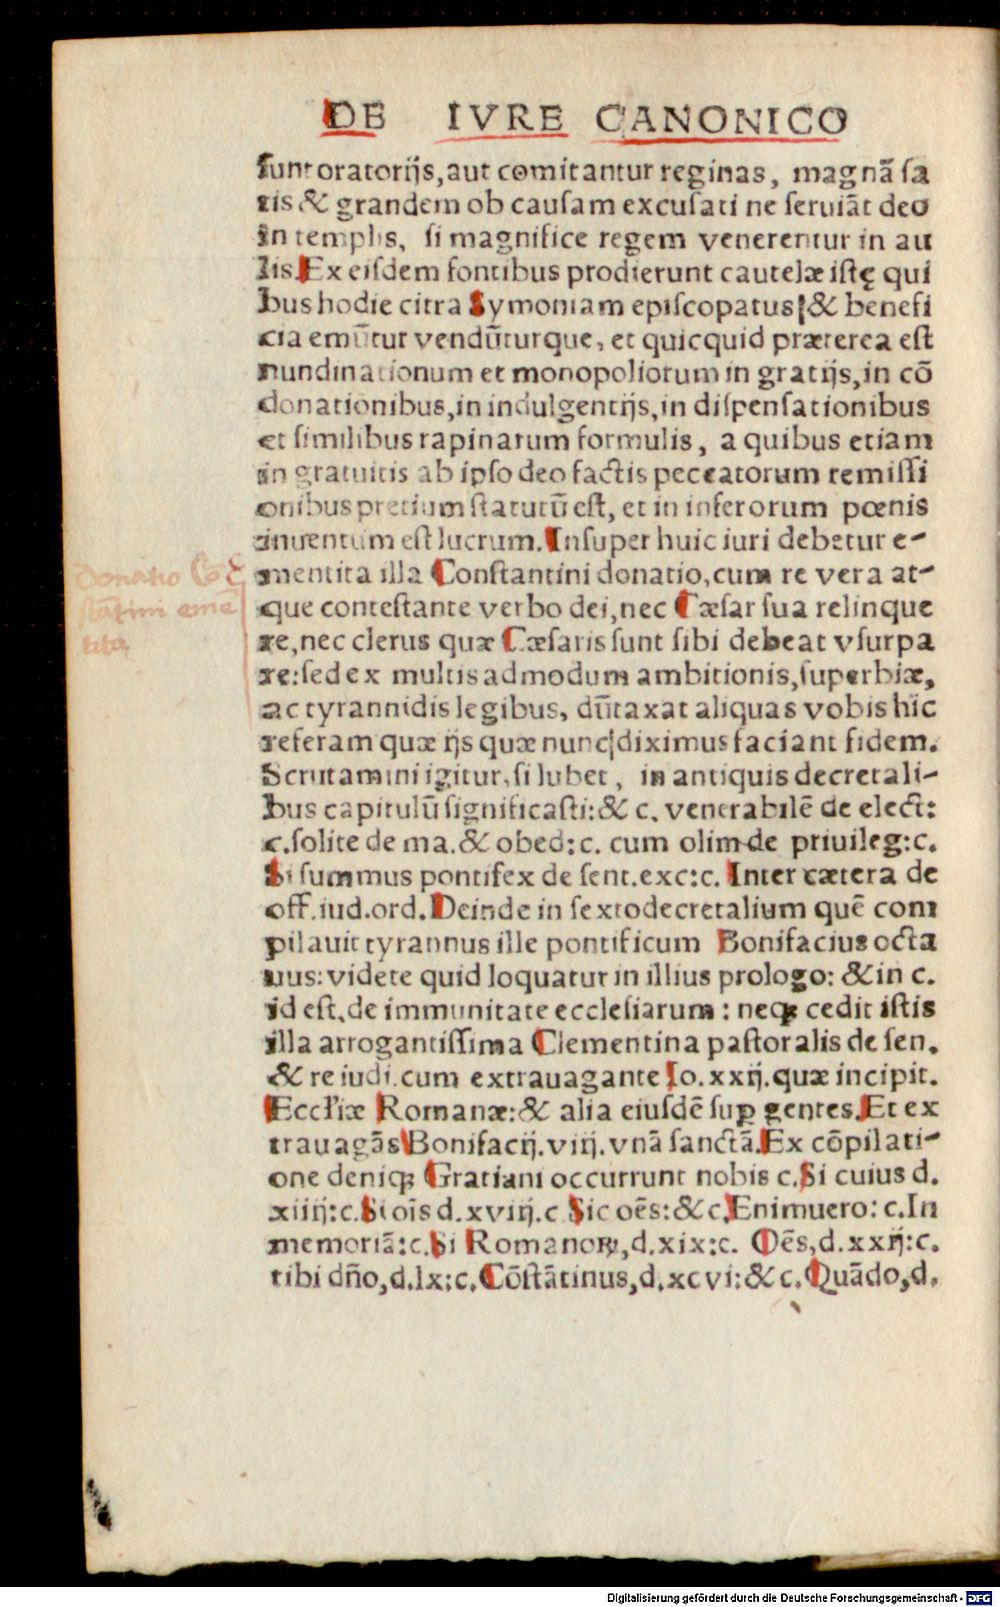 DE IVRE CANONICO
sunt oratorijs, aut comitantur reginas, magnã sa
tis & grandem ob causam excusati ne seruiãt deo
in templis, si magnifice regem venerentur in au
lis. Ex eisdem fontibus prodierunt cautelæ istę qui
bus hodie citra Symoniam episcopatus & benefi
cia emũtur vendũturque, et quicquid præterea est
nundinationum et monopoliorum in gratijs, in cõ
donationibus, in indulgentijs, in dispensationibus
et similibus rapinarum formulis, a quibus etiam
in gratuitis ab ipso deo factis peccatorum remissi
onibus pretium statutũ est, et in inferorum pœnis
inuentum est lucrum. Insuper huic iuri debetur e-
mentita illa Constantini donatio, cum re vera at-
que contestante verbo dei, nec Cæsar sua relinque
re, nec clerus quæ Cæsaris sunt sibi debeat vsurpa
re: sed ex multis admodum ambitionis, superbiæ,
ac tyrannidis legibus, dũtaxat aliquas vobis hic
referam quæ ijs quæ nunc diximus faciant fidem.
Scrutamini igitur, si lubet, in antiquis decretali-
bus capitulũ significasti: & c. venerabilẽ de elect:
c. solite de ma. & obed: c. cum olim de priuileg: c.
Si summus pontifex de sent. exc: c. Inter cætera de
off. iud. ord. Deinde in sexto decretalium quẽ com
pilauit tyrannus ille pontificum Bonifacius octa
uus: videte quid loquatur in illius prologo: & in c.
id est. de immunitate ecclesiarum: neqꝫ cedit istis
illa arrogantissima Clementina pastoralis de sen.
& re iudi. cum extrauagante Io. xxij. quæ incipit.
Eccl'iæ Romanæ: & alia eiusdẽ suꝑ gentes. Et ex
trauagãs Bonifacij. viij. vnã sanctã. Ex cõpilati-
one deniqꝫ Gratiani occurrunt nobis c. Si cuius d.
xiiij: c. Si oĩs d. xviij. c Sic oẽs: & c. Enimuero: c. In
memoriã: c. Si Romanoꝝ, d. xix: c. Oẽs, d. xxij: c.
tibi dño, d. lx: c. Cõstãtinus, d. xcvi: & c. Quãdo, d.
Donatio Cõ
stãtini emẽ
tita
Digitalisierung gefördert durch die Deutsche Forschungsgemeinschaft - DFG